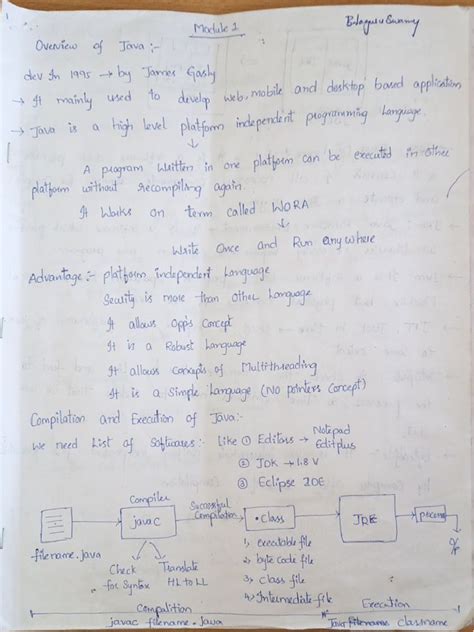 Module 1
Balaguru Swamy
Overview of Java :-
dev In 1995 → by James Gosly
→ It mainly used to develop web, mobile and desktop based application
→ Java is a high level platform independent programming Language.
↓
A program written in one platform can be executed in other
platform without recompiling again.
It Works on term called WORA
↓
Write Once and Run anywhere
Advantage :- platform independent Language
Security is more than Other Language
It allows Opp's Concept
It is a Robust Language
It allows Concepts of Multithreading
It is a Simple Language (No pointers Concept)
Compilation and Execution of Java:-
we need List of Softwares:- Like ① Editors → Notepad
Editplus
② JDK → 1.8 V
③ Eclipse IDE
Compiler
Successful
Compilation
javac
• Class
filename.java
Check
for Syntax
Translate
HL to LL
1, executable file
2, byte code file
3, class file
4, Intermediate file
O/P
Compilation
javac filename.java
Execution
classname